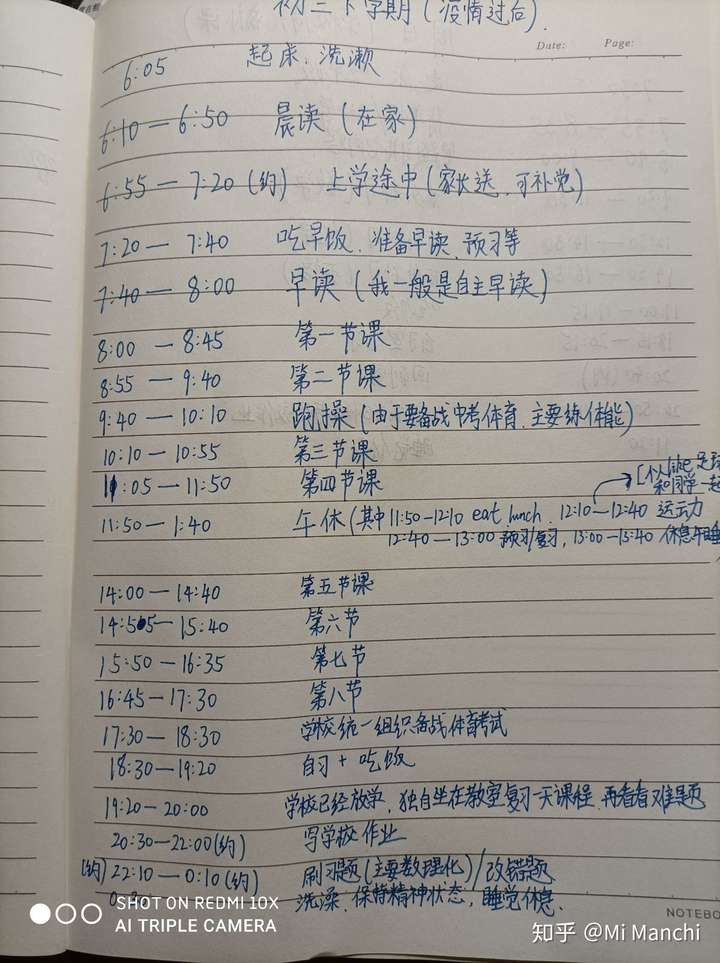 初三下学期(疫情过后)
Date: Page:
6:05 起床、洗漱
6:10—6:50 晨读(在家)
6:55—7:20(约) 上学途中(家长送,可补觉)
7:20—7:40 吃早饭、准备早读、预习等
7:40—8:00 早读(我一般是自主早读)
8:00—8:45 第一节课
8:55—9:40 第二节课
9:40—10:10 跑操(由于要备战中考体育,主要练体能)
10:10—10:55 第三节课
11:05—11:50 第四节课
和同学一起
11:50—1:40 午休(其中11:50-12:10 eat lunch、12:10—12:40 运动
12:40—13:00 预习/复习,13:00-13:40 休息午睡
14:00—14:40 第五节课
14:55—15:40 第六节
15:50—16:35 第七节
16:45—17:30 第八节
17:30—18:30 学校统一组织备战体育考试
18:30—19:20 自习+吃饭
19:20—20:00 学校已经放学,独自坐在教室复习一天课程,再看看难题
20:30—22:00(约) 写学校作业
(约)22:10—0:10(约) 刷习题(主要数理化)/改错题
洗澡、保持精神状态,睡觉休息.
SHOT ON REDMI 10X
AI TRIPLE CAMERA
NOTEBO
知乎 @Mi Manchi